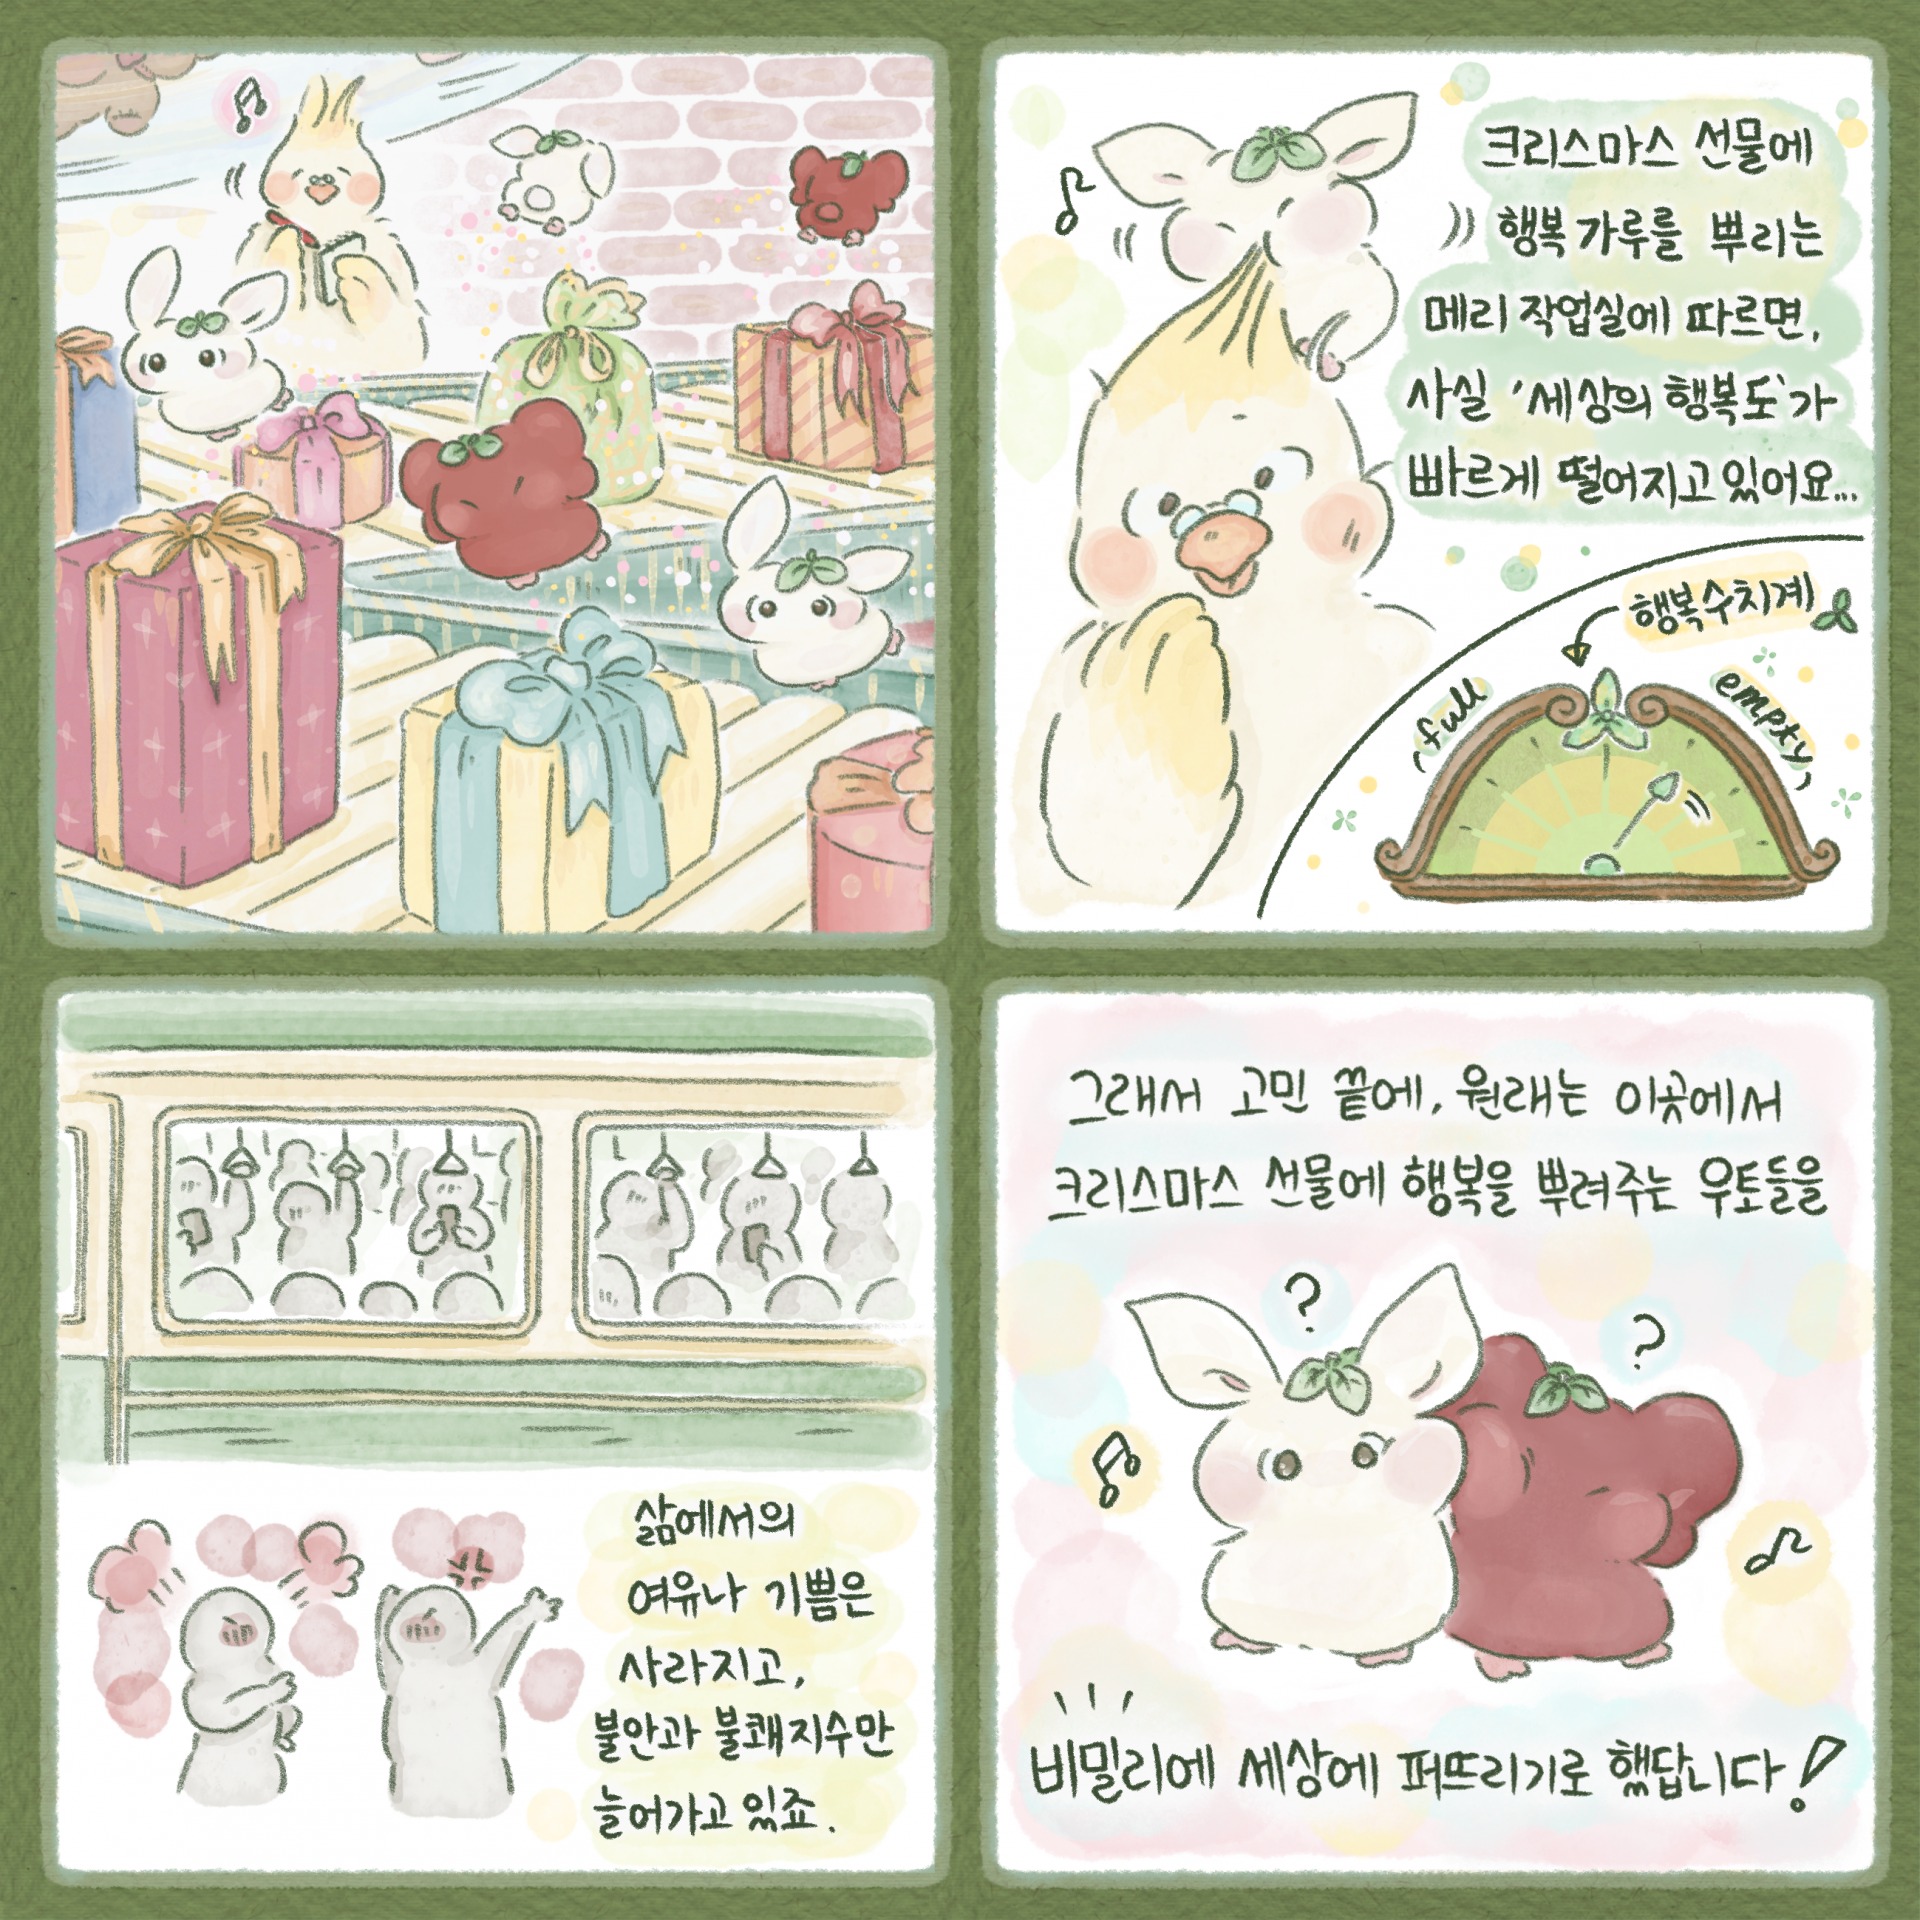 크리스마스 선물에
행복 가루를 뿌리는
메리 작업실에 따르면,
사실 '세상의 행복도'가
빠르게 떨어지고 있어요...
행복수치계
full
empty
삶에서의
여유나 기쁨은
사라지고,
불안과 불쾌지수만
늘어가고 있죠.
그래서 고민 끝에, 원래는 이곳에서
크리스마스 선물에 행복을 뿌려주는 우토들을
?
?
비밀리에 세상에 퍼뜨리기로 했답니다!